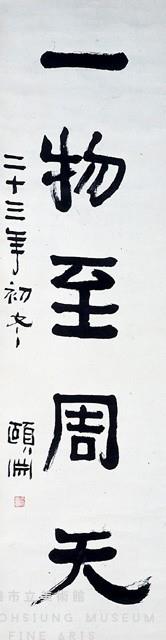 一物至周天
二十三年初冬
頤淵
市立美術館
OHSIUNG MUSEUM
FINE ARTS